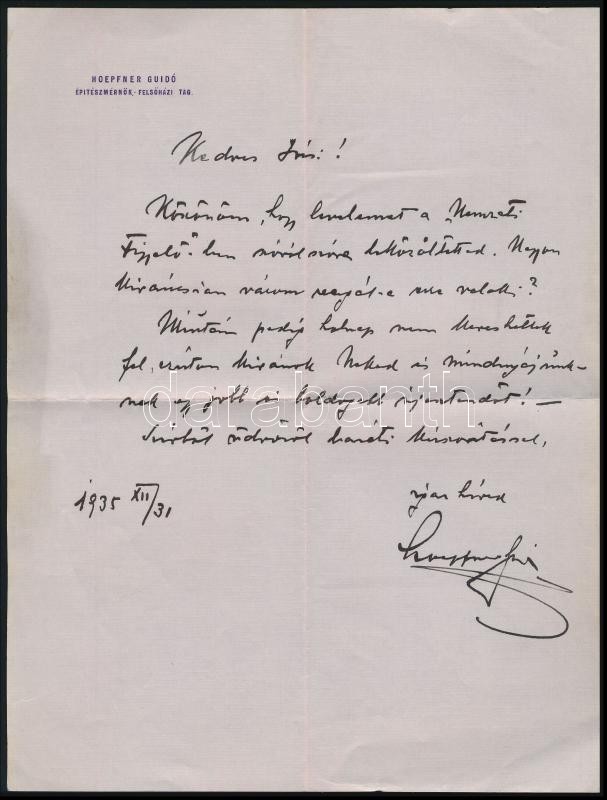 HOEPFNER GUIDÓ
ÉPITÉSZMÉRNÖK,- FELSŐHÁZI TAG.
Kedves !
Köszönöm, hogy levelemet a „Nemzeti
Figyelő"-ben szóról szóra leközöltetted. Nagyon
kiváncsian várom reagál-e erre valaki?
Miután pedig holnap nem kereshetlek
fel, ezúton kivánok Neked is mindnyájunk-
nak egy jobb és boldogabb ujesztendőt! —
Szivből üdvözöl baráti kézszoritással,
igaz hived
1935 XII/31
Hoepfner Guido
darabanth